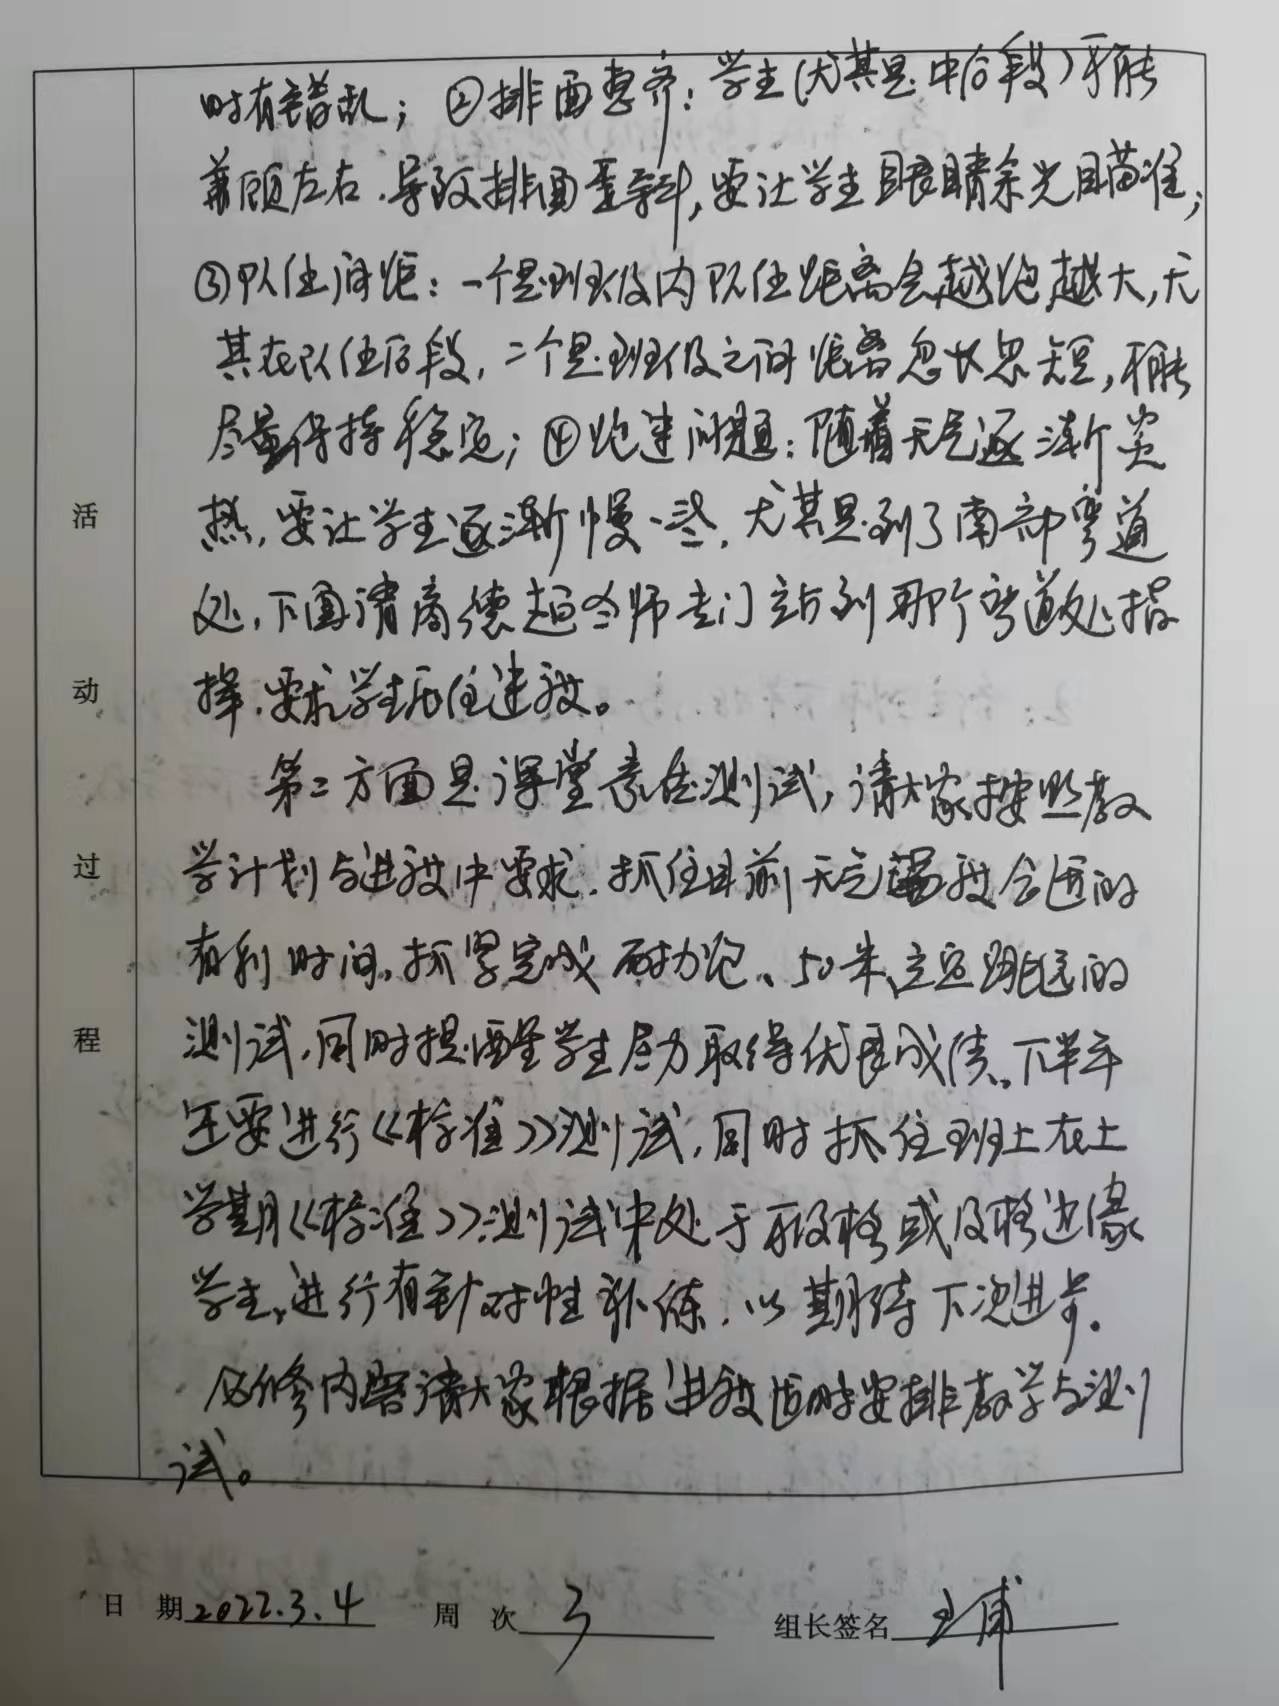 时有错乱；②排面整齐：学生（尤其是中后段）不能
兼顾左右，导致排面歪斜，要让学生眼睛余光瞄准；
③队伍间距：一个是班级内队伍距离会越跑越大，尤
其在队伍后段，二个是班级之间距离忽长忽短，不能
尽量保持稳定；④跑速问题：随着天气逐渐炎
热，要让学生逐渐慢一些，尤其是到了南部弯道
处，下面请高德超老师专门站到那个弯道处指
挥，要求学生压住速度。
第二方面是课堂素质测试，请大家按照教
学计划与进度中要求，抓住目前天气温度合适的
有利时间，抓紧完成耐力跑、50米、立定跳远的
测试，同时提醒学生尽力取得优良成绩。下半年
还要进行《标准》测试，同时抓住班上在上
学期《标准》测试中处于不及格或及格边缘
学生，进行有针对性补练，以期待下次进步。
必修内容请大家根据进度适时安排教学与测
试。
活
动
过
程
日 期 2022.3.4 周 次 3 组长签名 王